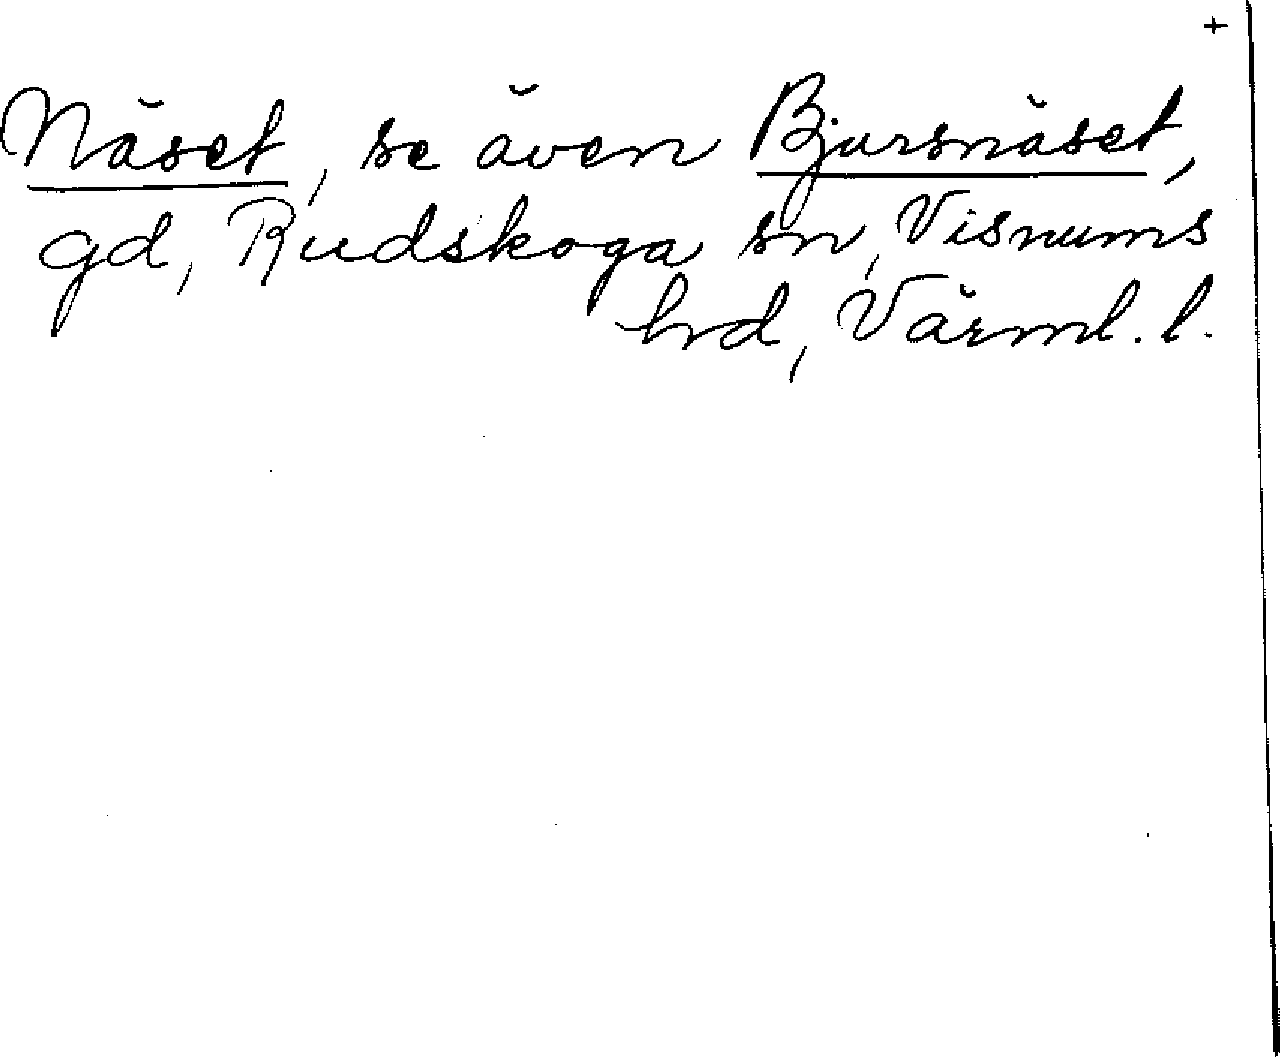 +
Näset, se även Bjursnäset,
gd, Rudskoga sn, Visnums
hd, Värml. l.